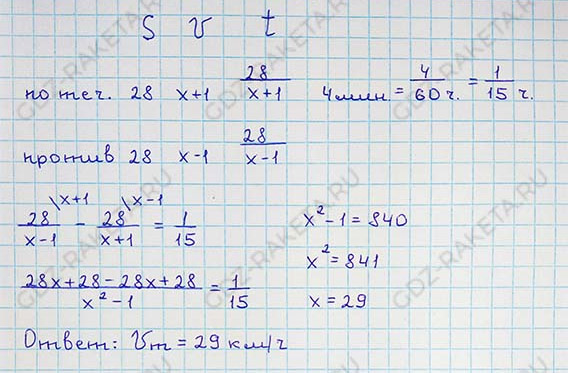 S v t
по теч. 28 x+1 28/(x+1) 4 мин. = 4/60 ч. = 1/15 ч.
против 28 x-1 28/(x-1)
28/(x-1) \x+1 - 28/(x+1) \x-1 = 1/15
(28x+28-28x+28)/(x²-1) = 1/15
x²-1=840
x²=841
x=29
Ответ: Vт = 29 км/ч
GDZ-RAKETA.RU
GDZ-RAKETA.RU
GDZ-RAKETA.RU
GDZ-RAKETA.RU
GDZ-RAKETA.RU
GDZ-RAKETA.RU